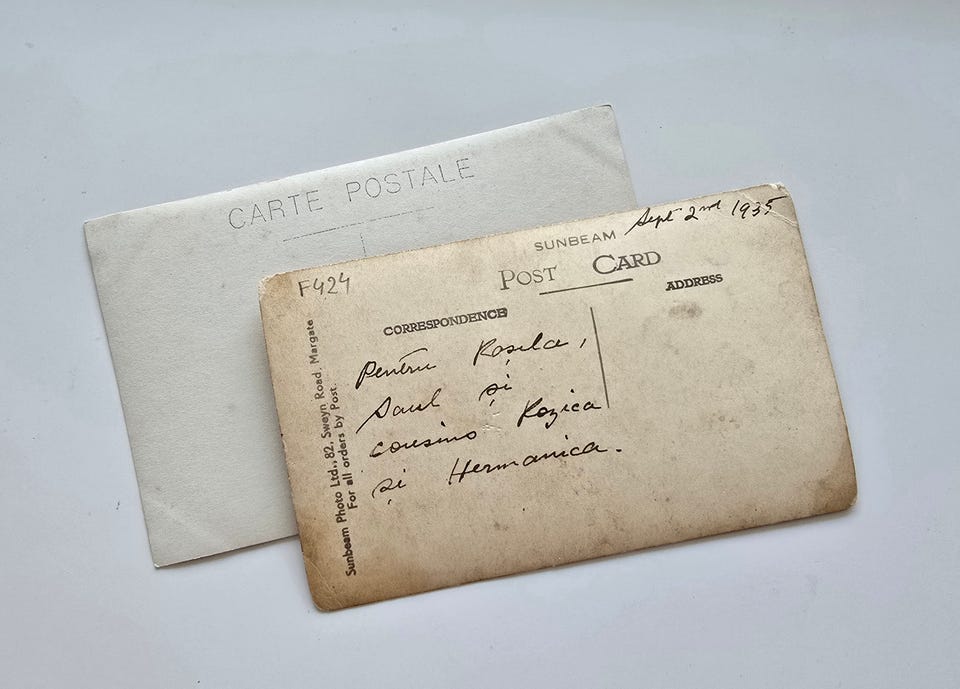 CARTE POSTALE
Sept 2nd 1935
SUNBEAM
POST CARD
F424
CORRESPONDENCE
ADDRESS
Pentru Rosela,
Saul și
cousins Rozica
și Hermanica.
Sunbeam Photo Ltd., 82, Sweyn Road, Margate
For all orders by Post.